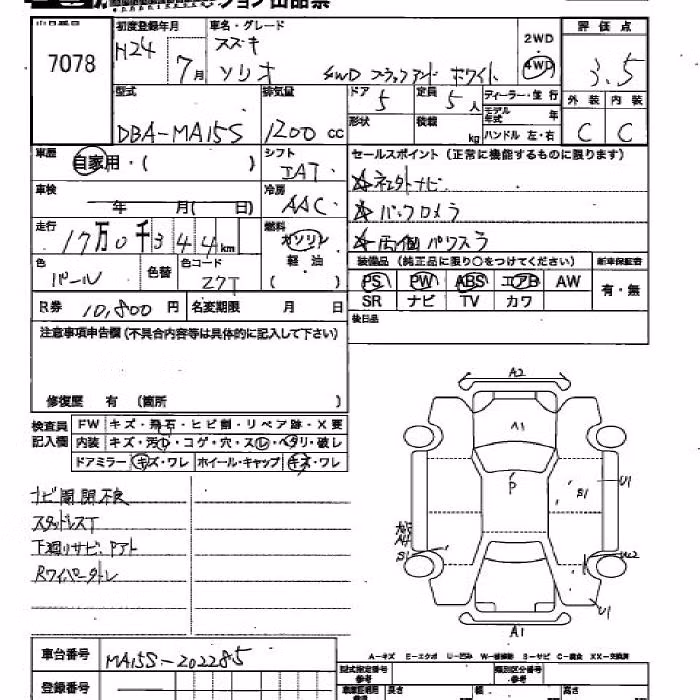 ション出品票
出品番号 初度登録年月 車名・グレード 2WD 評価点
7078 H24 7月 スズキ 4WD 3.5
ソリオ 4WD ブラックアンド ホワイト
型式 排気量 ドア 5 定員 5人 ディーラー・並行 外装 内装
DBA-MA15S 1200 cc 形状 積載 kg モデル年式 年 C C
ハンドル 左・右
車歴 自家用・( ) シフト セールスポイント(正常に機能するものに限ります)
IAT
車検 年 月( 日) 冷房 AAC ☆ネクストナビ
☆バックカメラ
走行 17万0千344km 燃料 ガソリン ☆両側パワスラ
軽油
色 パール 色替 色コード Z7T ( ) 装備品(純正品に限り○をつけてください) 新車保証書
PS PW ABS エアB AW 有・無
R券 10,800円 名変期限 月 日 SR ナビ TV カワ
注意事項申告欄(不具合内容等は具体的に記入して下さい) 後日品
修復歴 有 (箇所 )
検査員記入欄 FW キズ・飛石・ヒビ割・リペア跡・X要
内装 キズ・汚れ・コゲ・穴・スレ・ヘタリ・破レ
ドアミラー キズ・ワレ ホイール・キャップ キズ・ワレ
ナビ開閉不良
スタッドレスT
下廻りサビ、Pアト
Rワイパーカレ
A2
A1
P
B1 U1
S1
U1
A1
車台番号 MA15S-202285
A-キズ E-エクボ U-凹み W-補修跡 S-サビ C-腐食 XX-交換済
登録番号 型式指定番号 参考 類別区分番号 参考
車庫証明用 参考 長さ 幅 高さ